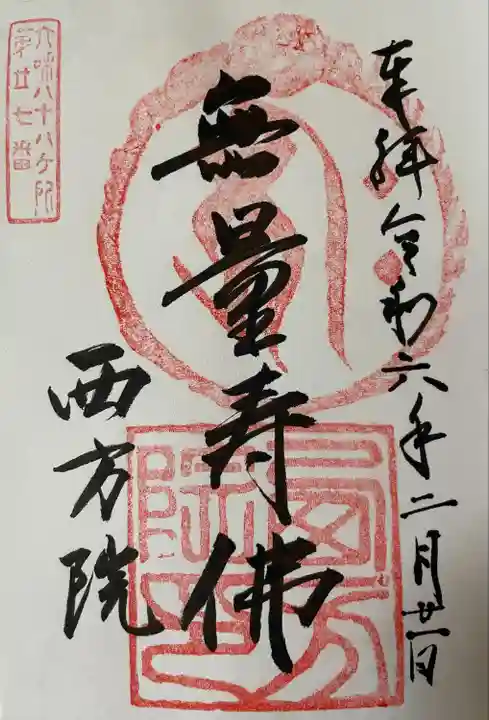 奉拝 令和六年二月廿一日
無量寿佛
西方院
大師八十八ヶ所
第廿七番